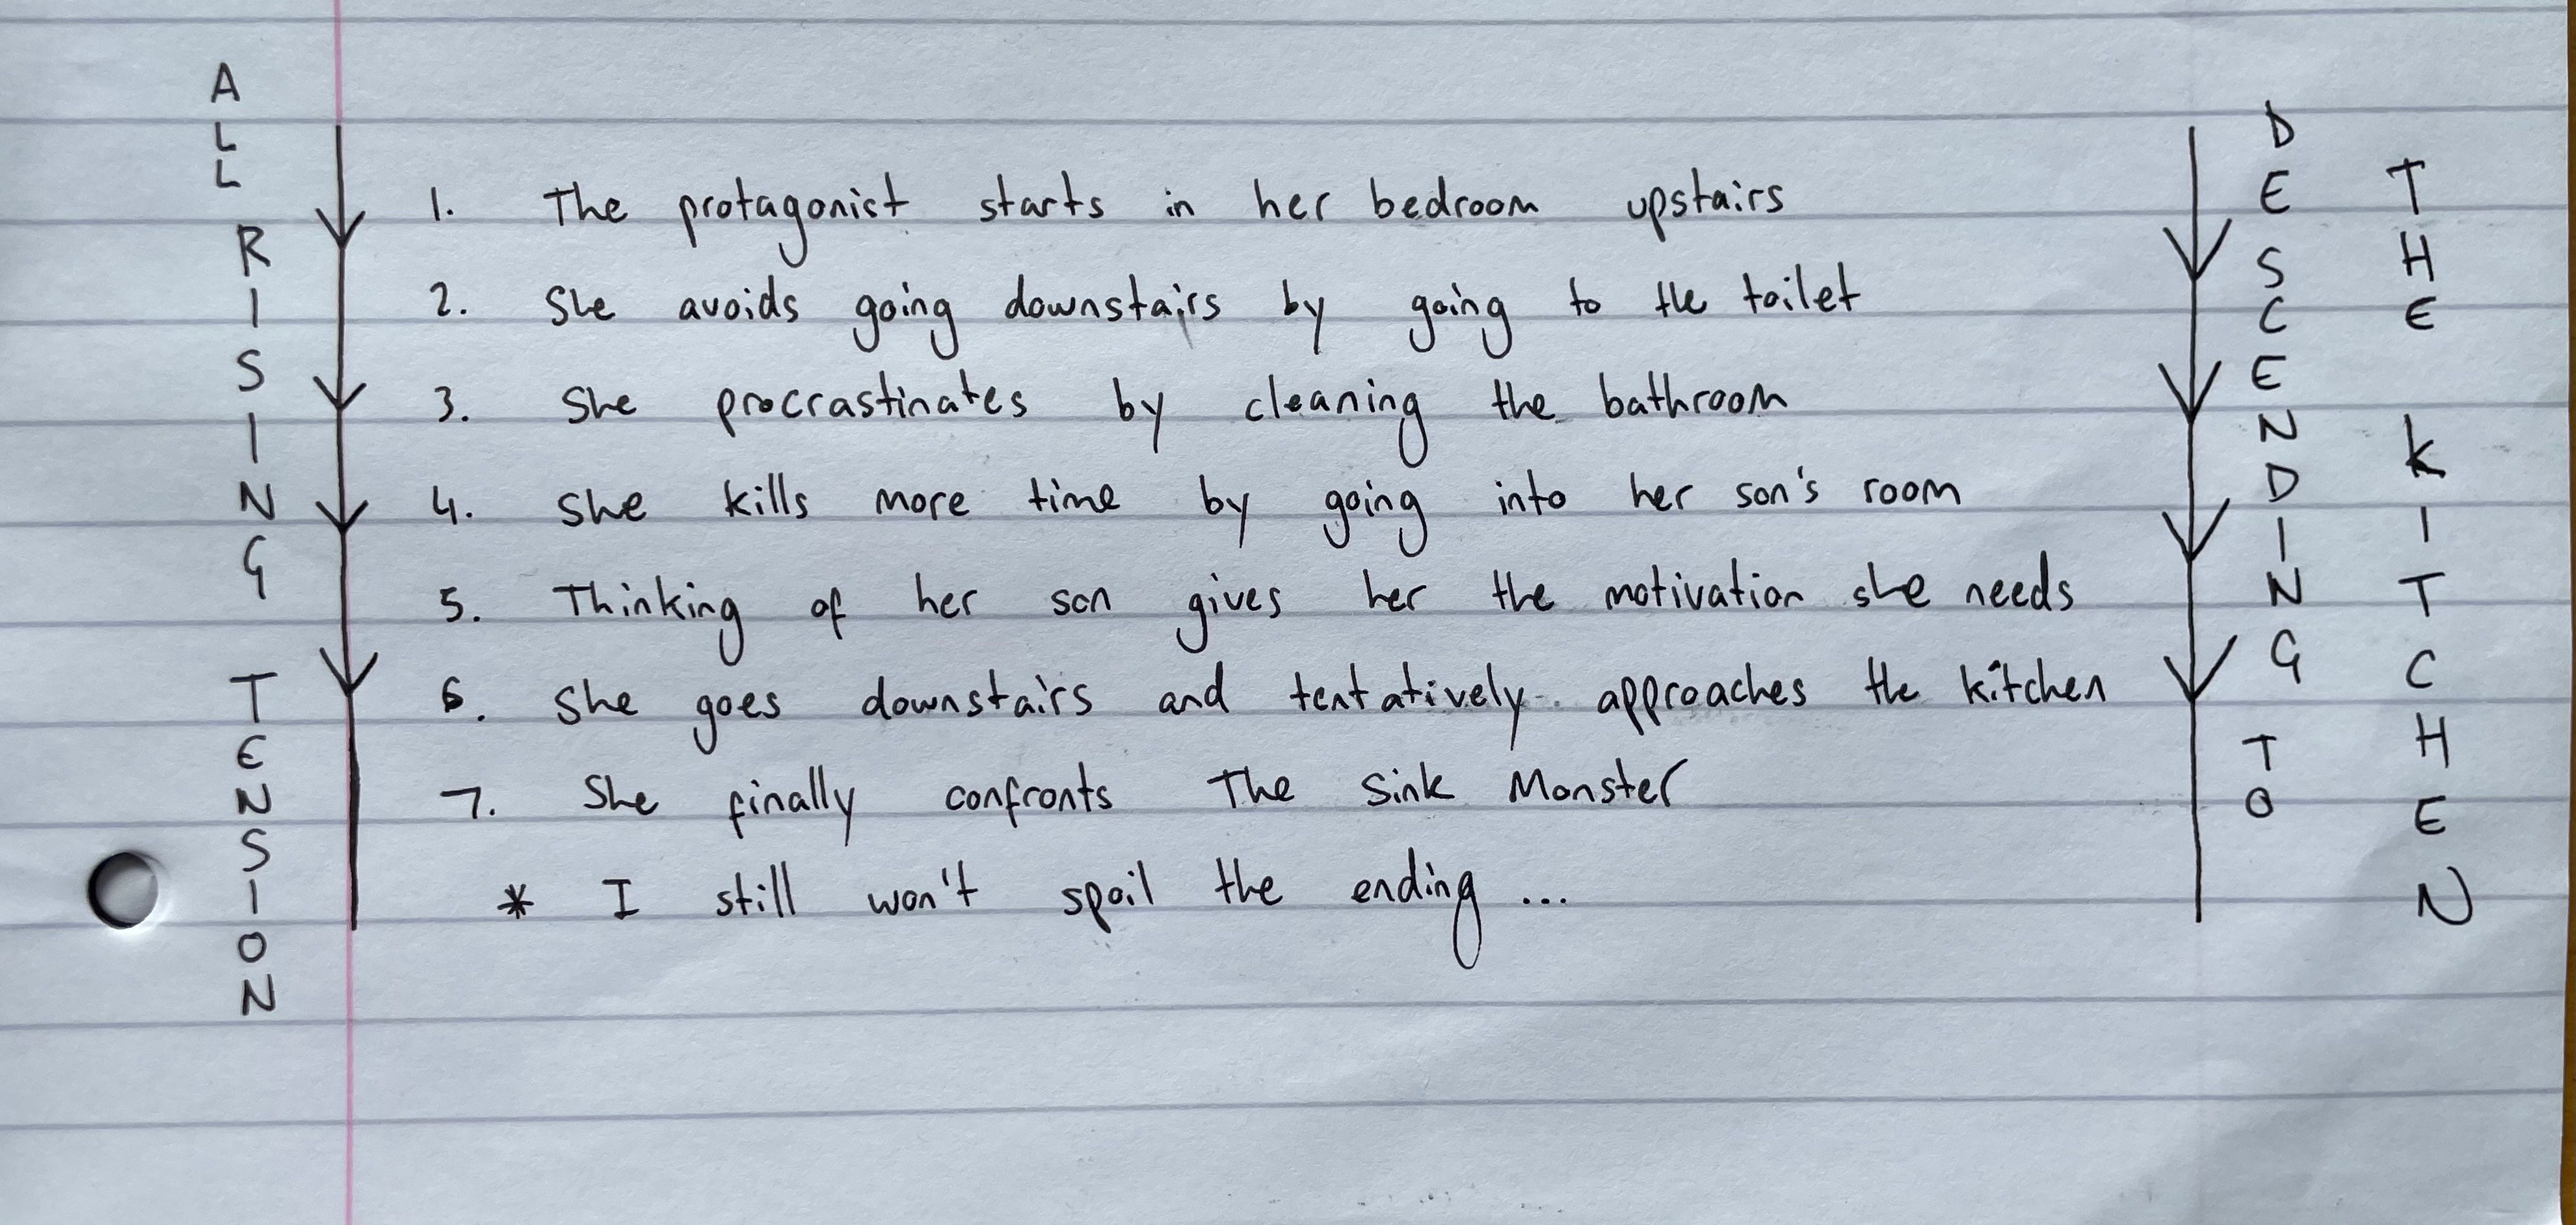 ALL RISING TENSION
1. The protagonist starts in her bedroom upstairs
2. She avoids going downstairs by going to the toilet
3. She procrastinates by cleaning the bathroom
4. She kills more time by going into her son's room
5. Thinking of her son gives her the motivation she needs
6. She goes downstairs and tentatively approaches the kitchen
7. She finally confronts The Sink Monster
* I still won't spoil the ending ...
DESCENDING TO
THE KITCHEN